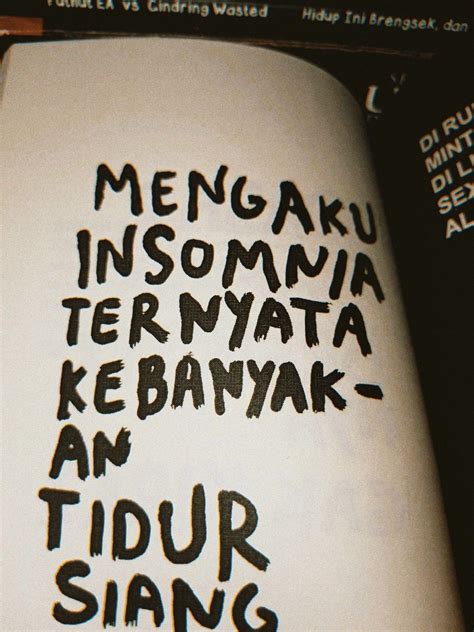 Puthut EA vs Cindring Wasted
Hidup Ini Brengsek, dan
MENGAKU
INSOMNIA
TERNYATA
KEBANYAK-
AN
TIDUR
SIANG
DI RU
MINT
DI L
SEX
AL